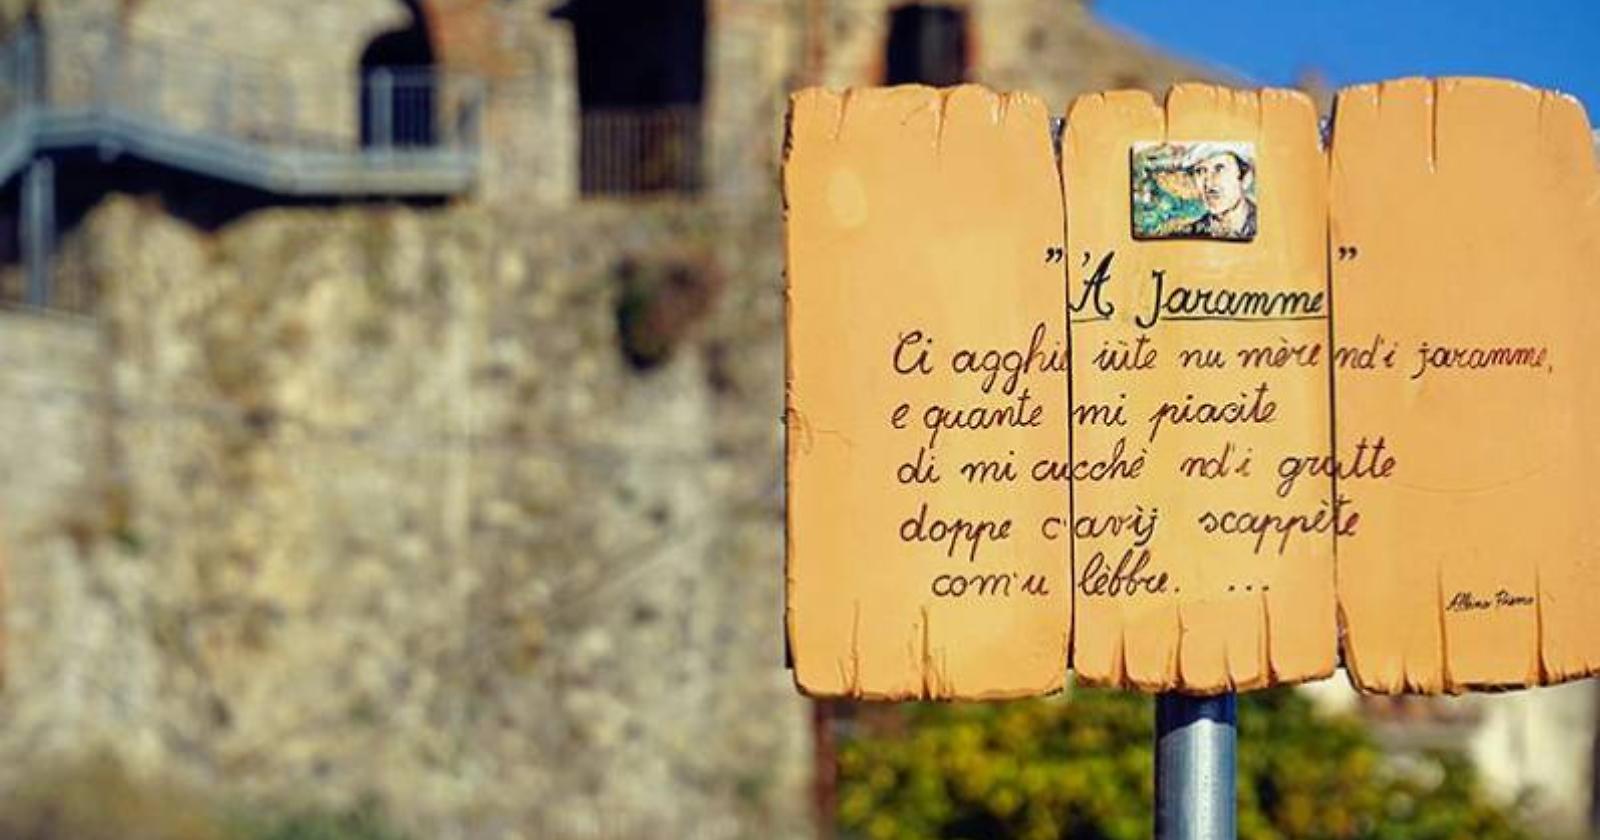 ” 'A Jaramme ”
Ci agghie iùte nu mère nd'i jaramme,
e quante mi piacite
di mi cucchè nd'i grutte
doppe c'avìj scappète
com'u lèbbre. ...
Albino Pierro